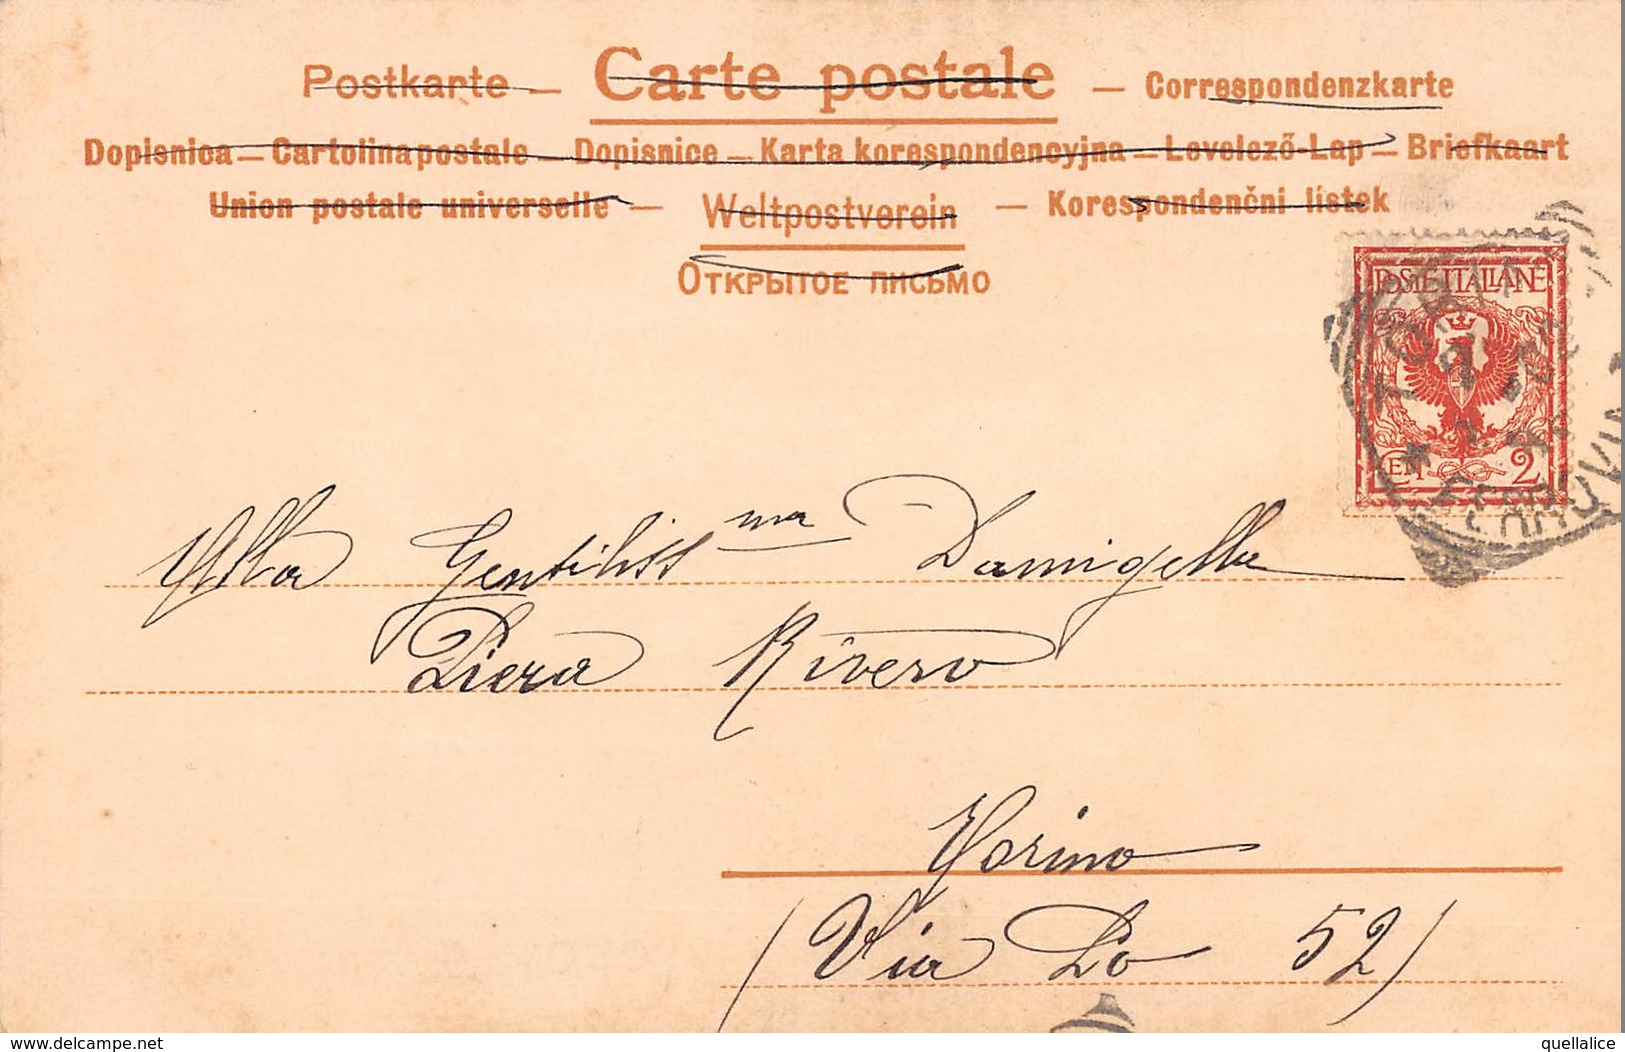 Postkarte — Carte postale — Correspondenzkarte
Dopisnica — Cartolina postale — Dopisnice — Karta korespondencyjna — Levelező-Lap — Briefkaart
Union postale universelle — Weltpostverein — Korespondenčni lístek
Открытое письмо
POSTE ITALIANE
CENT 2
TORINO
FERROVIA
Alla Gentiliss ma Damigella
Piera Rivero
Torino
(Via Po 52)
delcampe.net
quellalice